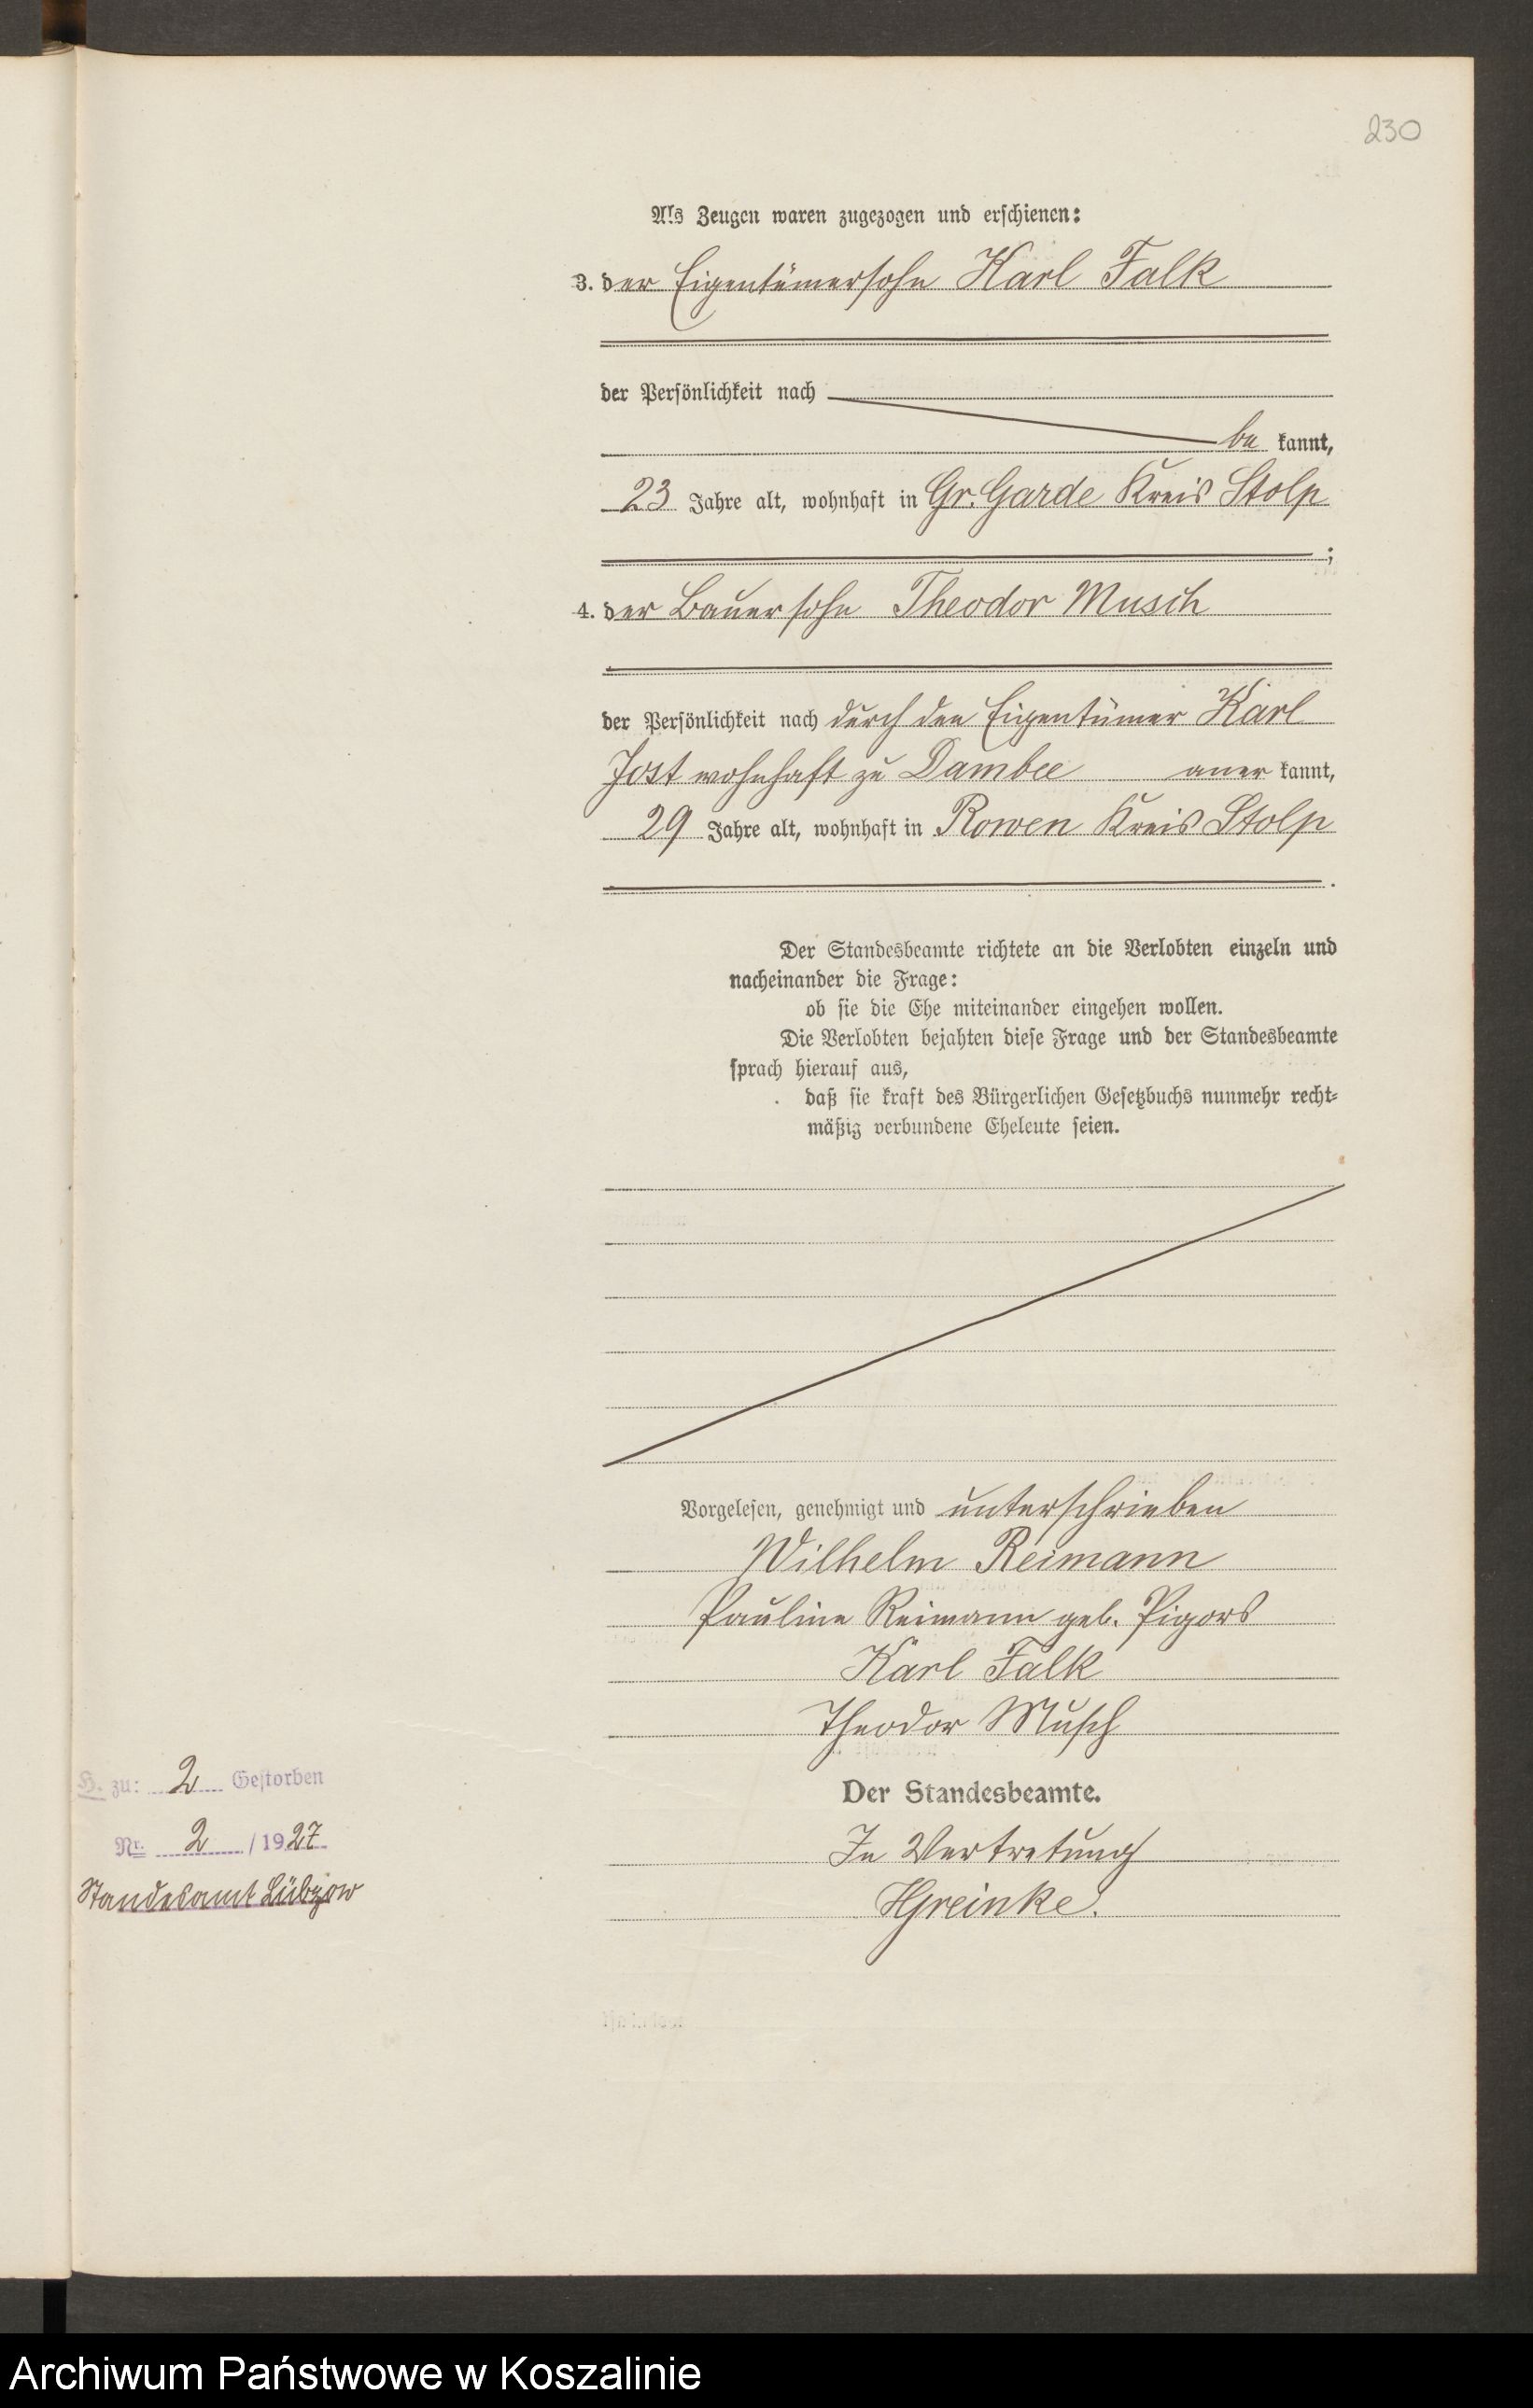 230
Als Zeugen waren zugezogen und erschienen:
3. der Eigentümersohn Karl Falk
der Persönlichkeit nach
be kannt,
23 Jahre alt, wohnhaft in Gr. Garde Kreis Stolp
;
4. der Bauersohn Theodor Musch
der Persönlichkeit nach durch den Eigentümer Karl
Jost wohnhaft zu Dambee aner kannt,
29 Jahre alt, wohnhaft in Rowen Kreis Stolp
.
Der Standesbeamte richtete an die Verlobten einzeln und
nacheinander die Frage:
ob sie die Ehe miteinander eingehen wollen.
Die Verlobten bejahten diese Frage und der Standesbeamte
sprach hierauf aus,
daß sie kraft des Bürgerlichen Gesetzbuchs nunmehr recht-
mäßig verbundene Eheleute seien.
Vorgelesen, genehmigt und unterschrieben
Wilhelm Reimann
Pauline Reimann geb. Pigors
Karl Falk
Theodor Musch
Der Standesbeamte.
In Vertretung
HGreinke.
H. zu: 2 Gestorben
Nr. 2 / 1927
Standesamt Lübzow
Archiwum Państwowe w Koszalinie